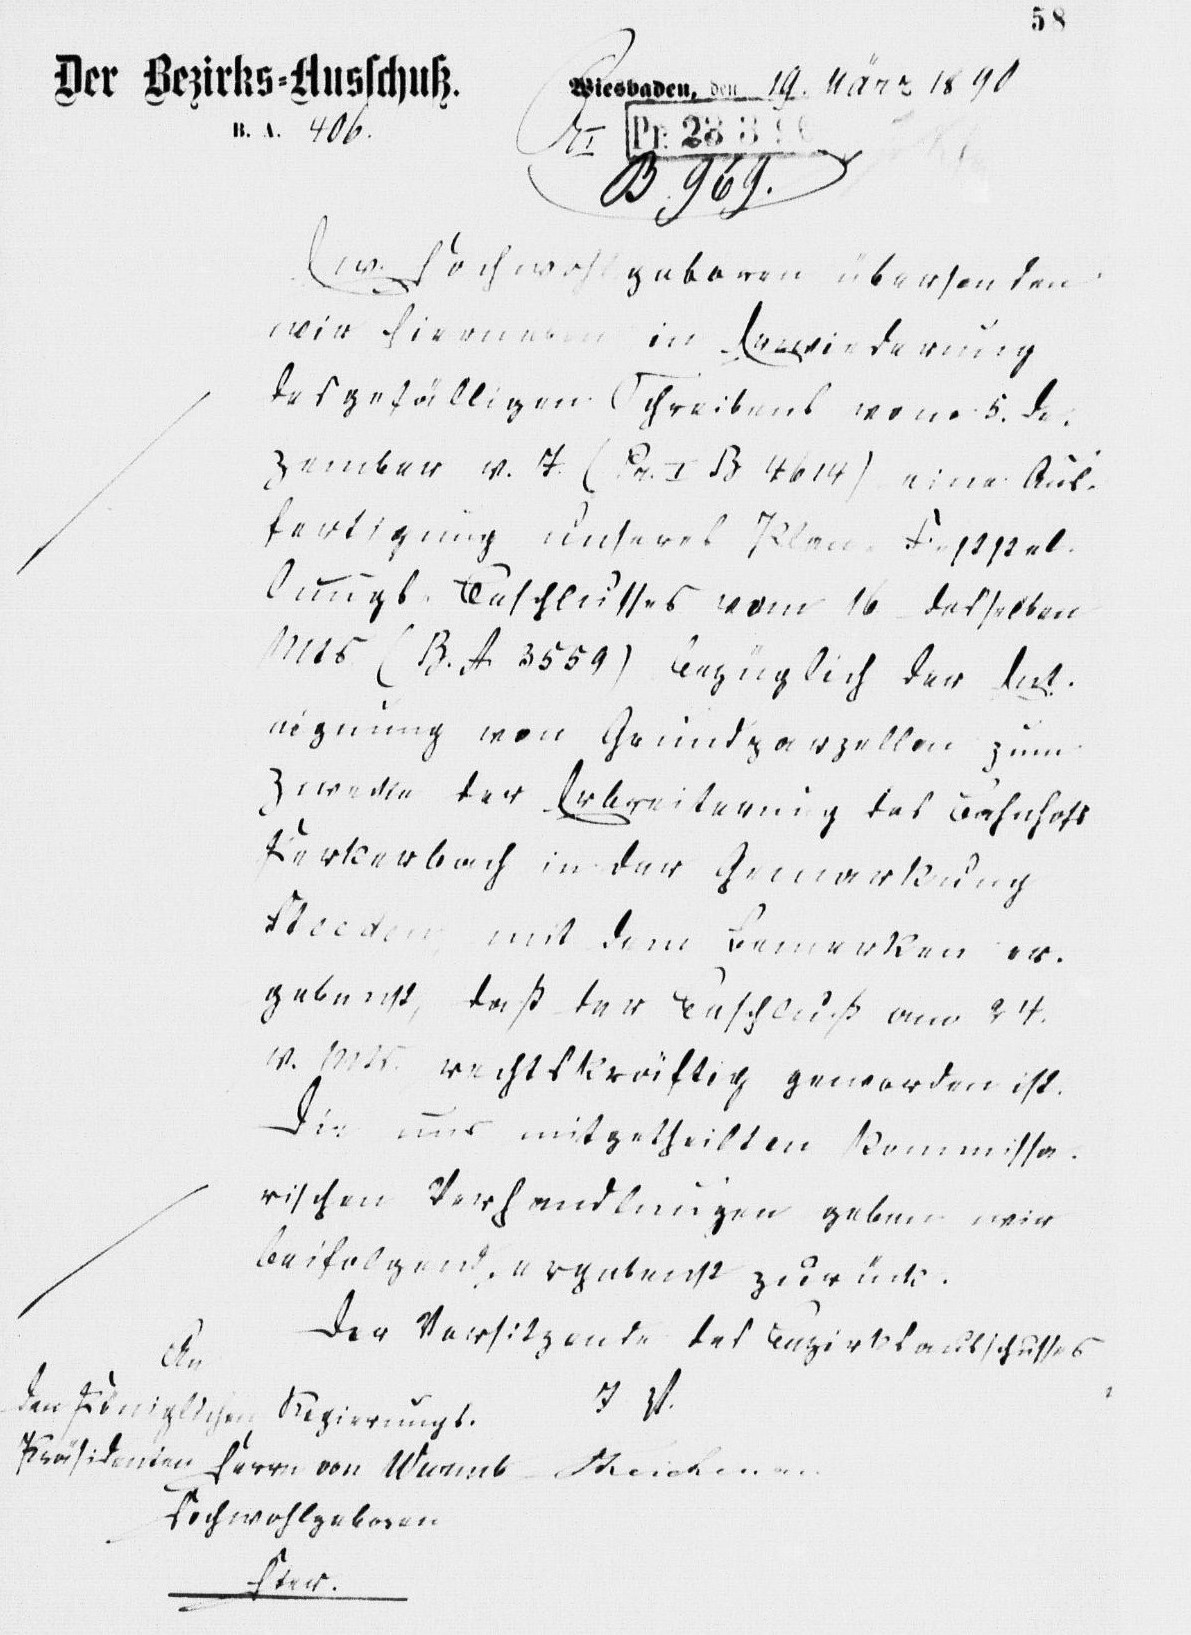 58
Der Bezirks=Ausschuß.
Wiesbaden, den 19. März 1890
B. A. 406.
Pr. I Pr. 23 3 90
B 969.
Ew. Hochwohlgeboren übersenden
wir hierneben in Erwiederung
des gefälligen Schreibens vom 5. De-
zember v. J. (Pr. I B 4614) eine Aus-
fertigung unseres Plan-Feststel-
lungs-Beschlusses vom 16 desselben
Mts (B. A 3559) bezüglich der Ent-
eignung von Grundparzellen zum
Zwecke der Erbreiterung des Bahnhofs
Kerkerbach in der Gemarkung
Steeden, mit dem Bemerken er-
gebenst, daß der Beschluß am 24.
v. Mts. rechtskräftig geworden ist.
Die uns mitgetheilten kommissa-
rischen Verhandlungen geben wir
beifolgend ergebenst zurück.
Der Vorsitzende des Bezirksausschusses
An
den Königlichen Regierungs-
J V.
Präsidenten Herrn von Wurmb
Hochwohlgeboren
hier.